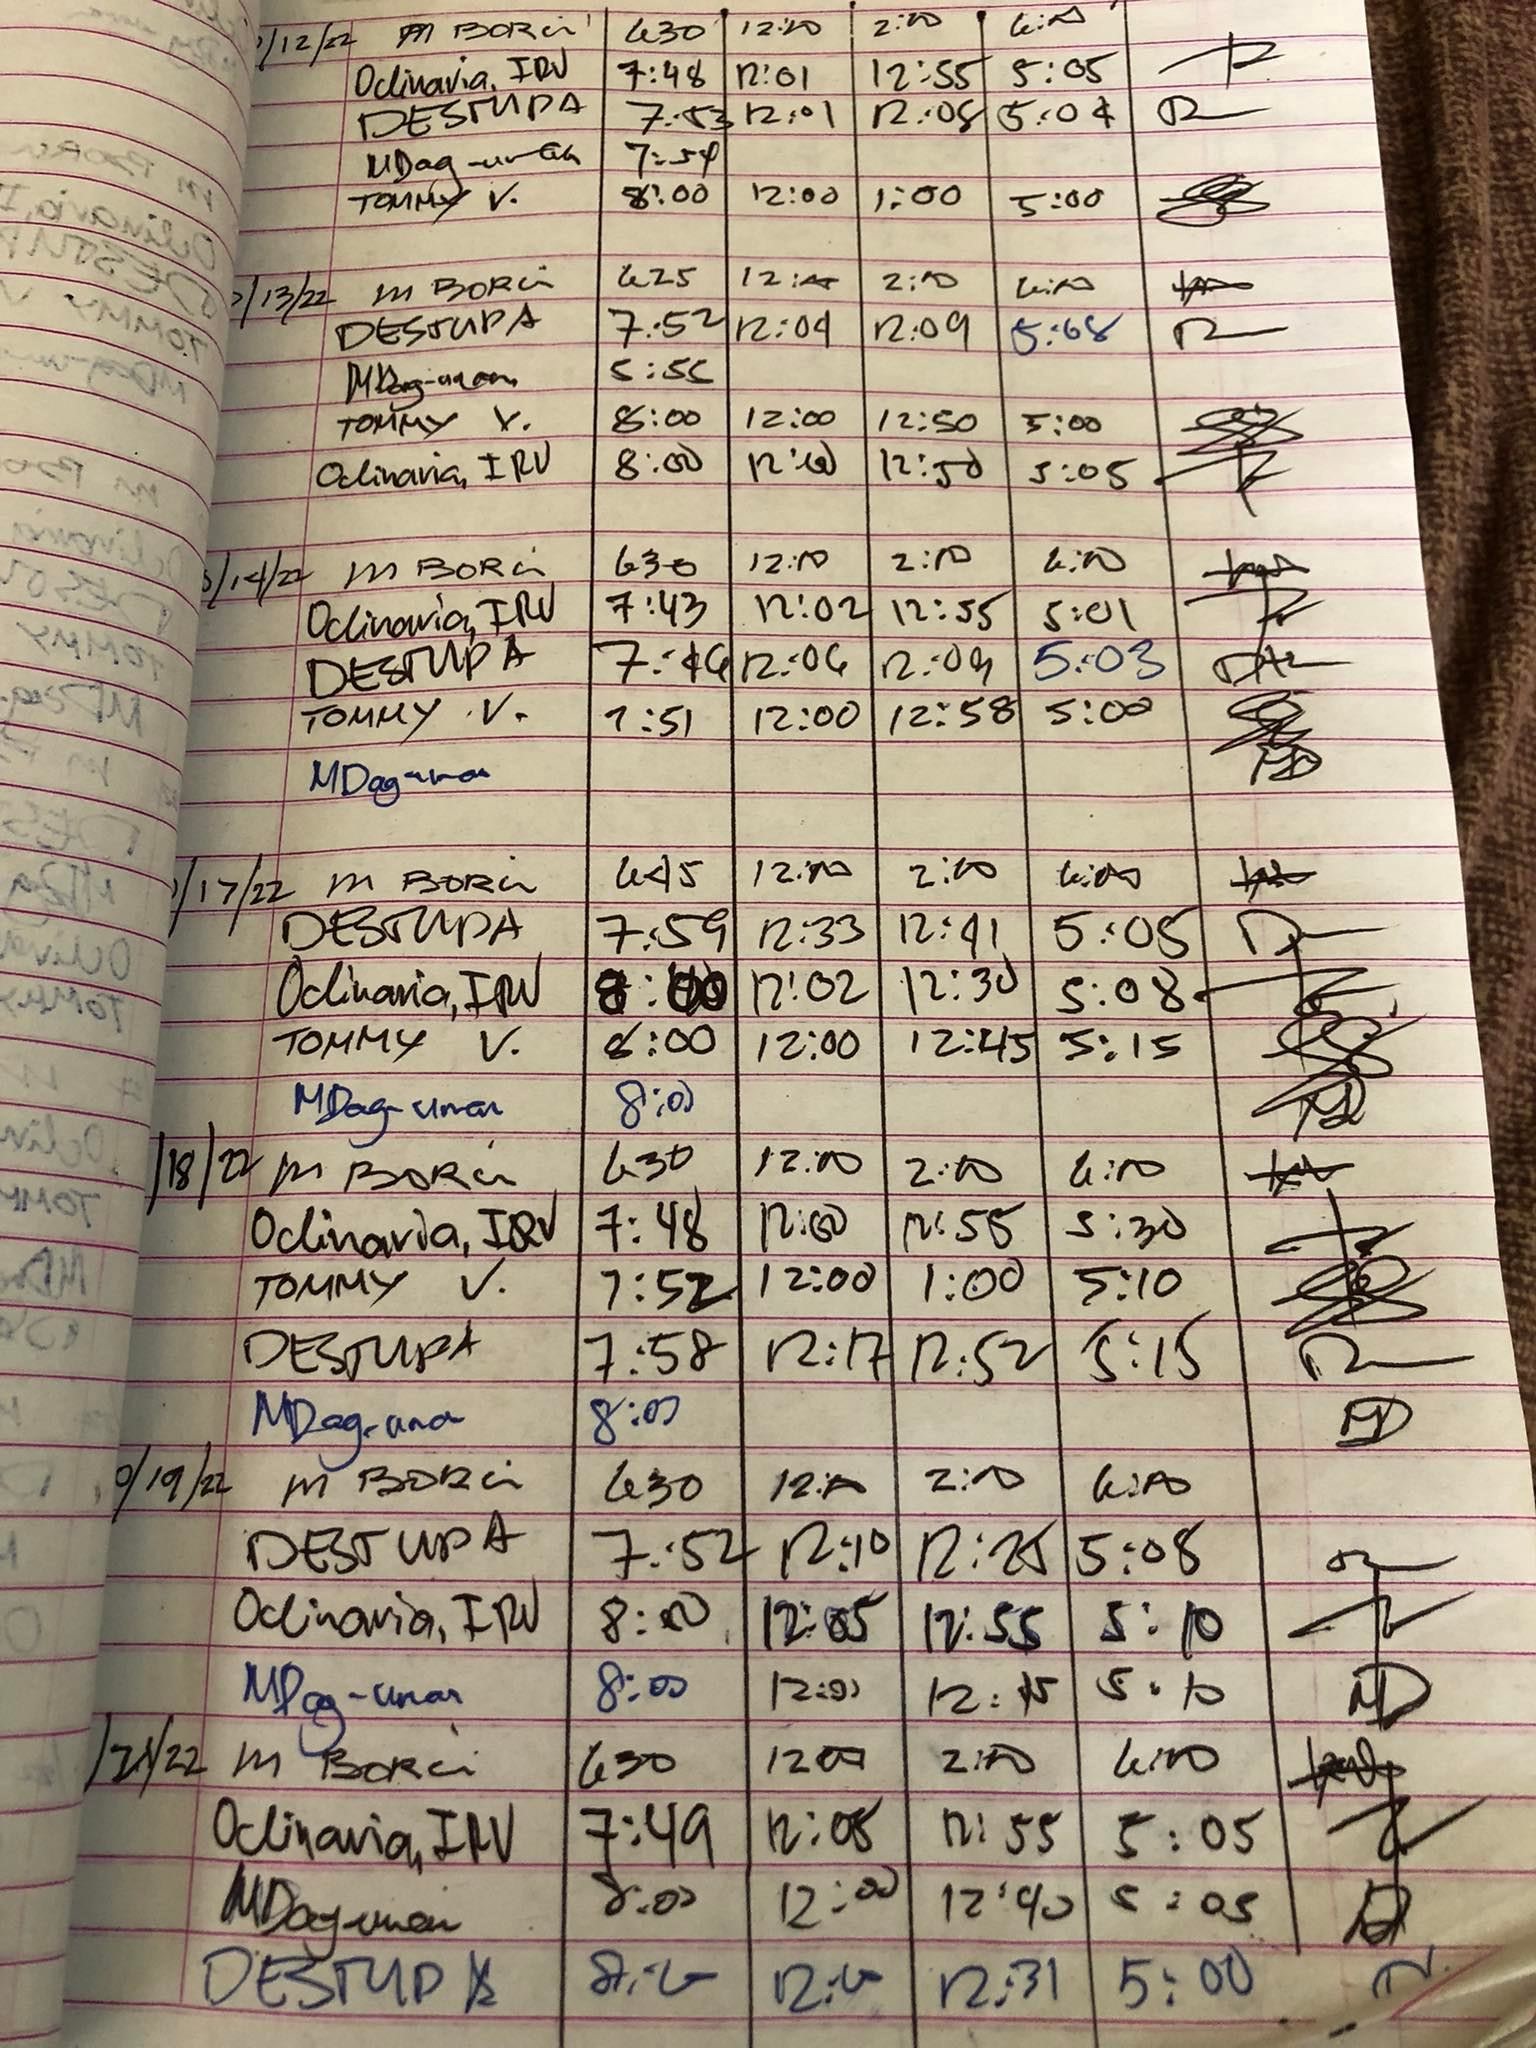 /12/22 M BORCI 630 12:00 2:00 6:00
Oclinaria, IRV 7:48 12:01 12:55 5:05
DESTUPA 7:53 12:01 12:08 5:04
MDag-unan 7:54
TOMMY V. 8:00 12:00 1:00 5:00
/13/22 M BORCI 625 12:00 2:00 6:00
DESTUPA 7:52 12:04 12:09 5:08
MDag-unan 5:55
TOMMY V. 8:00 12:00 12:50 5:00
Oclinaria, IRV 8:00 12:00 12:50 5:05
/14/22 M BORCI 630 12:00 2:00 6:00
Oclinaria, IRV 7:43 12:02 12:55 5:01
DESTUPA 7:46 12:06 12:09 5:03
TOMMY V. 7:51 12:00 12:58 5:00
MDag-unan MD
/17/22 M BORCI 645 12:00 2:00 6:00
DESTUPA 7:59 12:33 12:41 5:05
Oclinaria, IRV 8:00 12:02 12:30 5:08
TOMMY V. 8:00 12:00 12:45 5:15
MDag-unan 8:00 MD
/18/22 M BORCI 630 12:00 2:00 6:00
Oclinaria, IRV 7:48 12:00 12:55 5:30
TOMMY V. 7:52 12:00 1:00 5:10
DESTUPA 7:58 12:17 12:52 5:15
MDag-unan 8:00 MD
0/19/22 M BORCI 630 12:00 2:00 6:00
DESTUPA 7:52 12:10 12:25 5:08
Oclinaria, IRV 8:00 12:05 12:55 5:10
MDag-unan 8:00 12:00 12:45 5:10 MD
/21/22 M BORCI 630 1200 2:00 6:00
Oclinaria, IRV 7:49 12:05 12:55 5:05
MDag-unan 8:00 12:00 12:40 5:05
DESTUPA 12:31 5:00